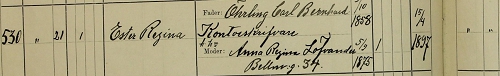 Fader: Öhrling Carl Bernhard 5/10 1858 15/4
530 " 21 1 Ester Regina Kontorsskrifvare
Moder: Anna Regina Löfvander 5/9 1 1897
Bellm.g. 34. 1875